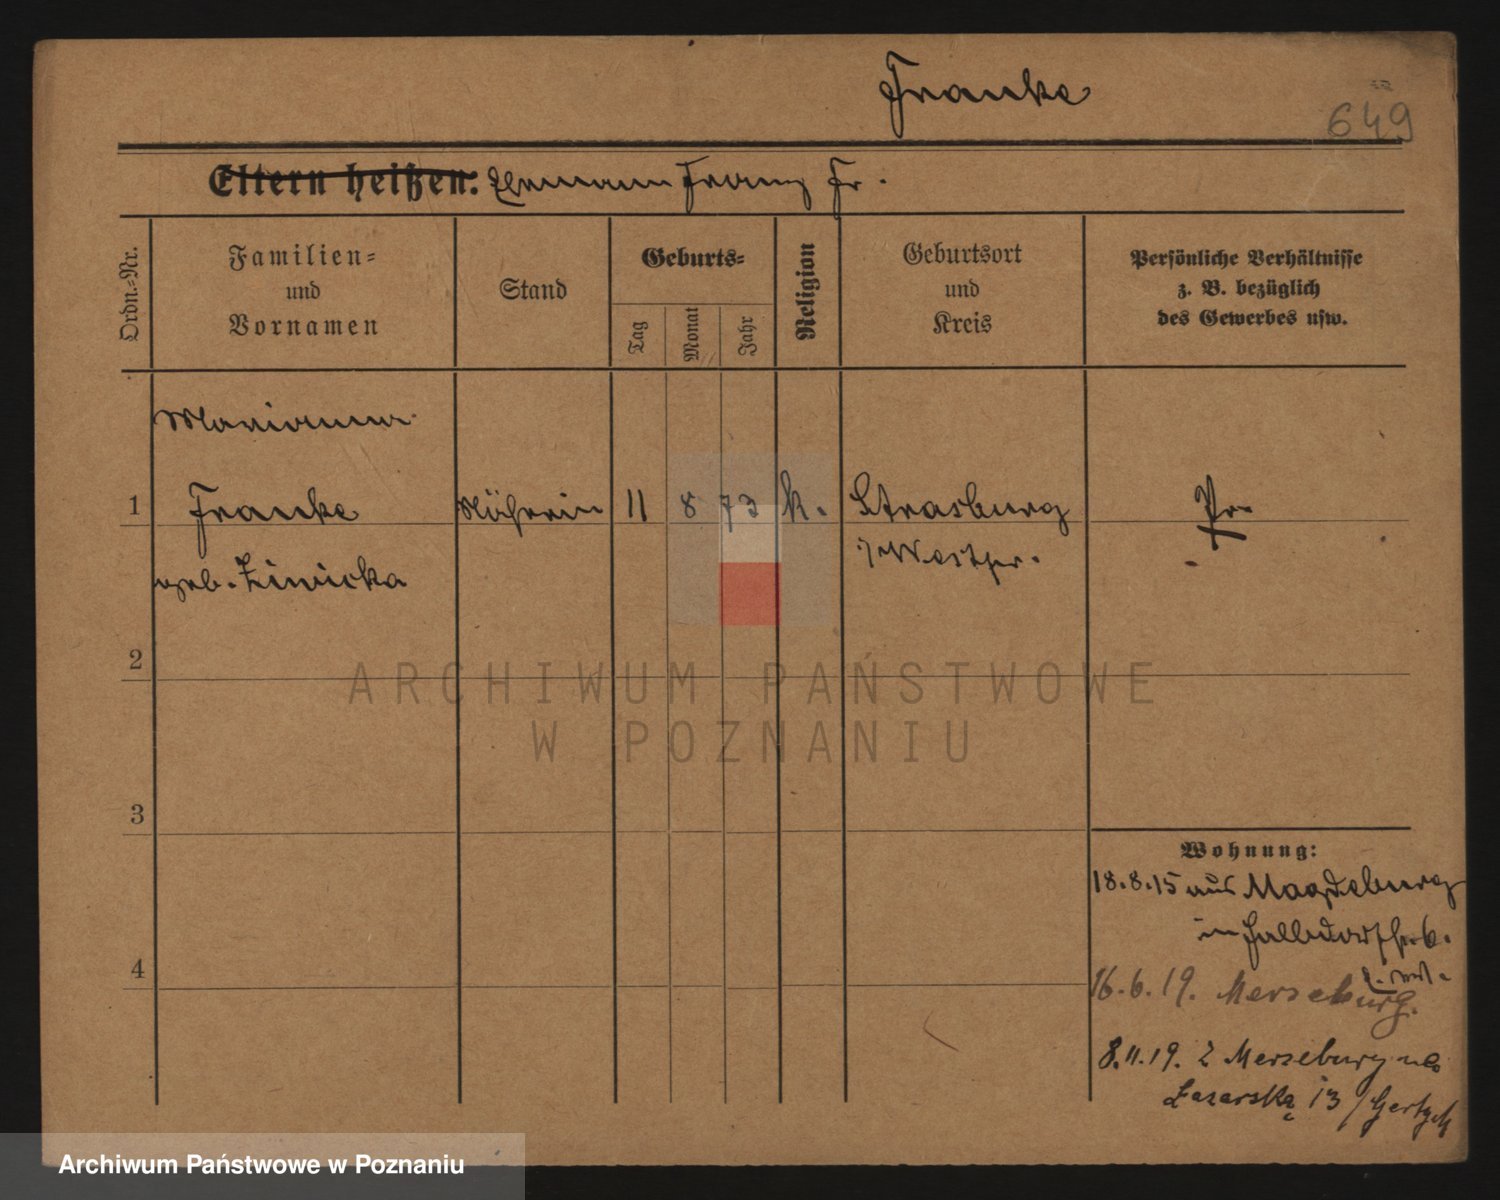 Franke
649
Eltern heißen: Ehemann Franz Fr.
Ordn.-Nr.
Familien-
und
Vornamen
Stand
Geburts-
Tag
Monat
Jahr
Religion
Geburtsort
und
Kreis
Persönliche Verhältnisse
z. B. bezüglich
des Gewerbes usw.
Marianna
1 Franke Näherin 11 8 73 k. Strasburg Pr.
geb. Ziwicka i/Westpr.
2
3
4
Wohnung:
18.8.15 aus Magdeburg
in
16.6.19. Merseburg.
8.11.19. z Merseburg na
Łazarską 13 /
ARCHIWUM PAŃSTWOWE
W POZNANIU
Archiwum Państwowe w Poznaniu